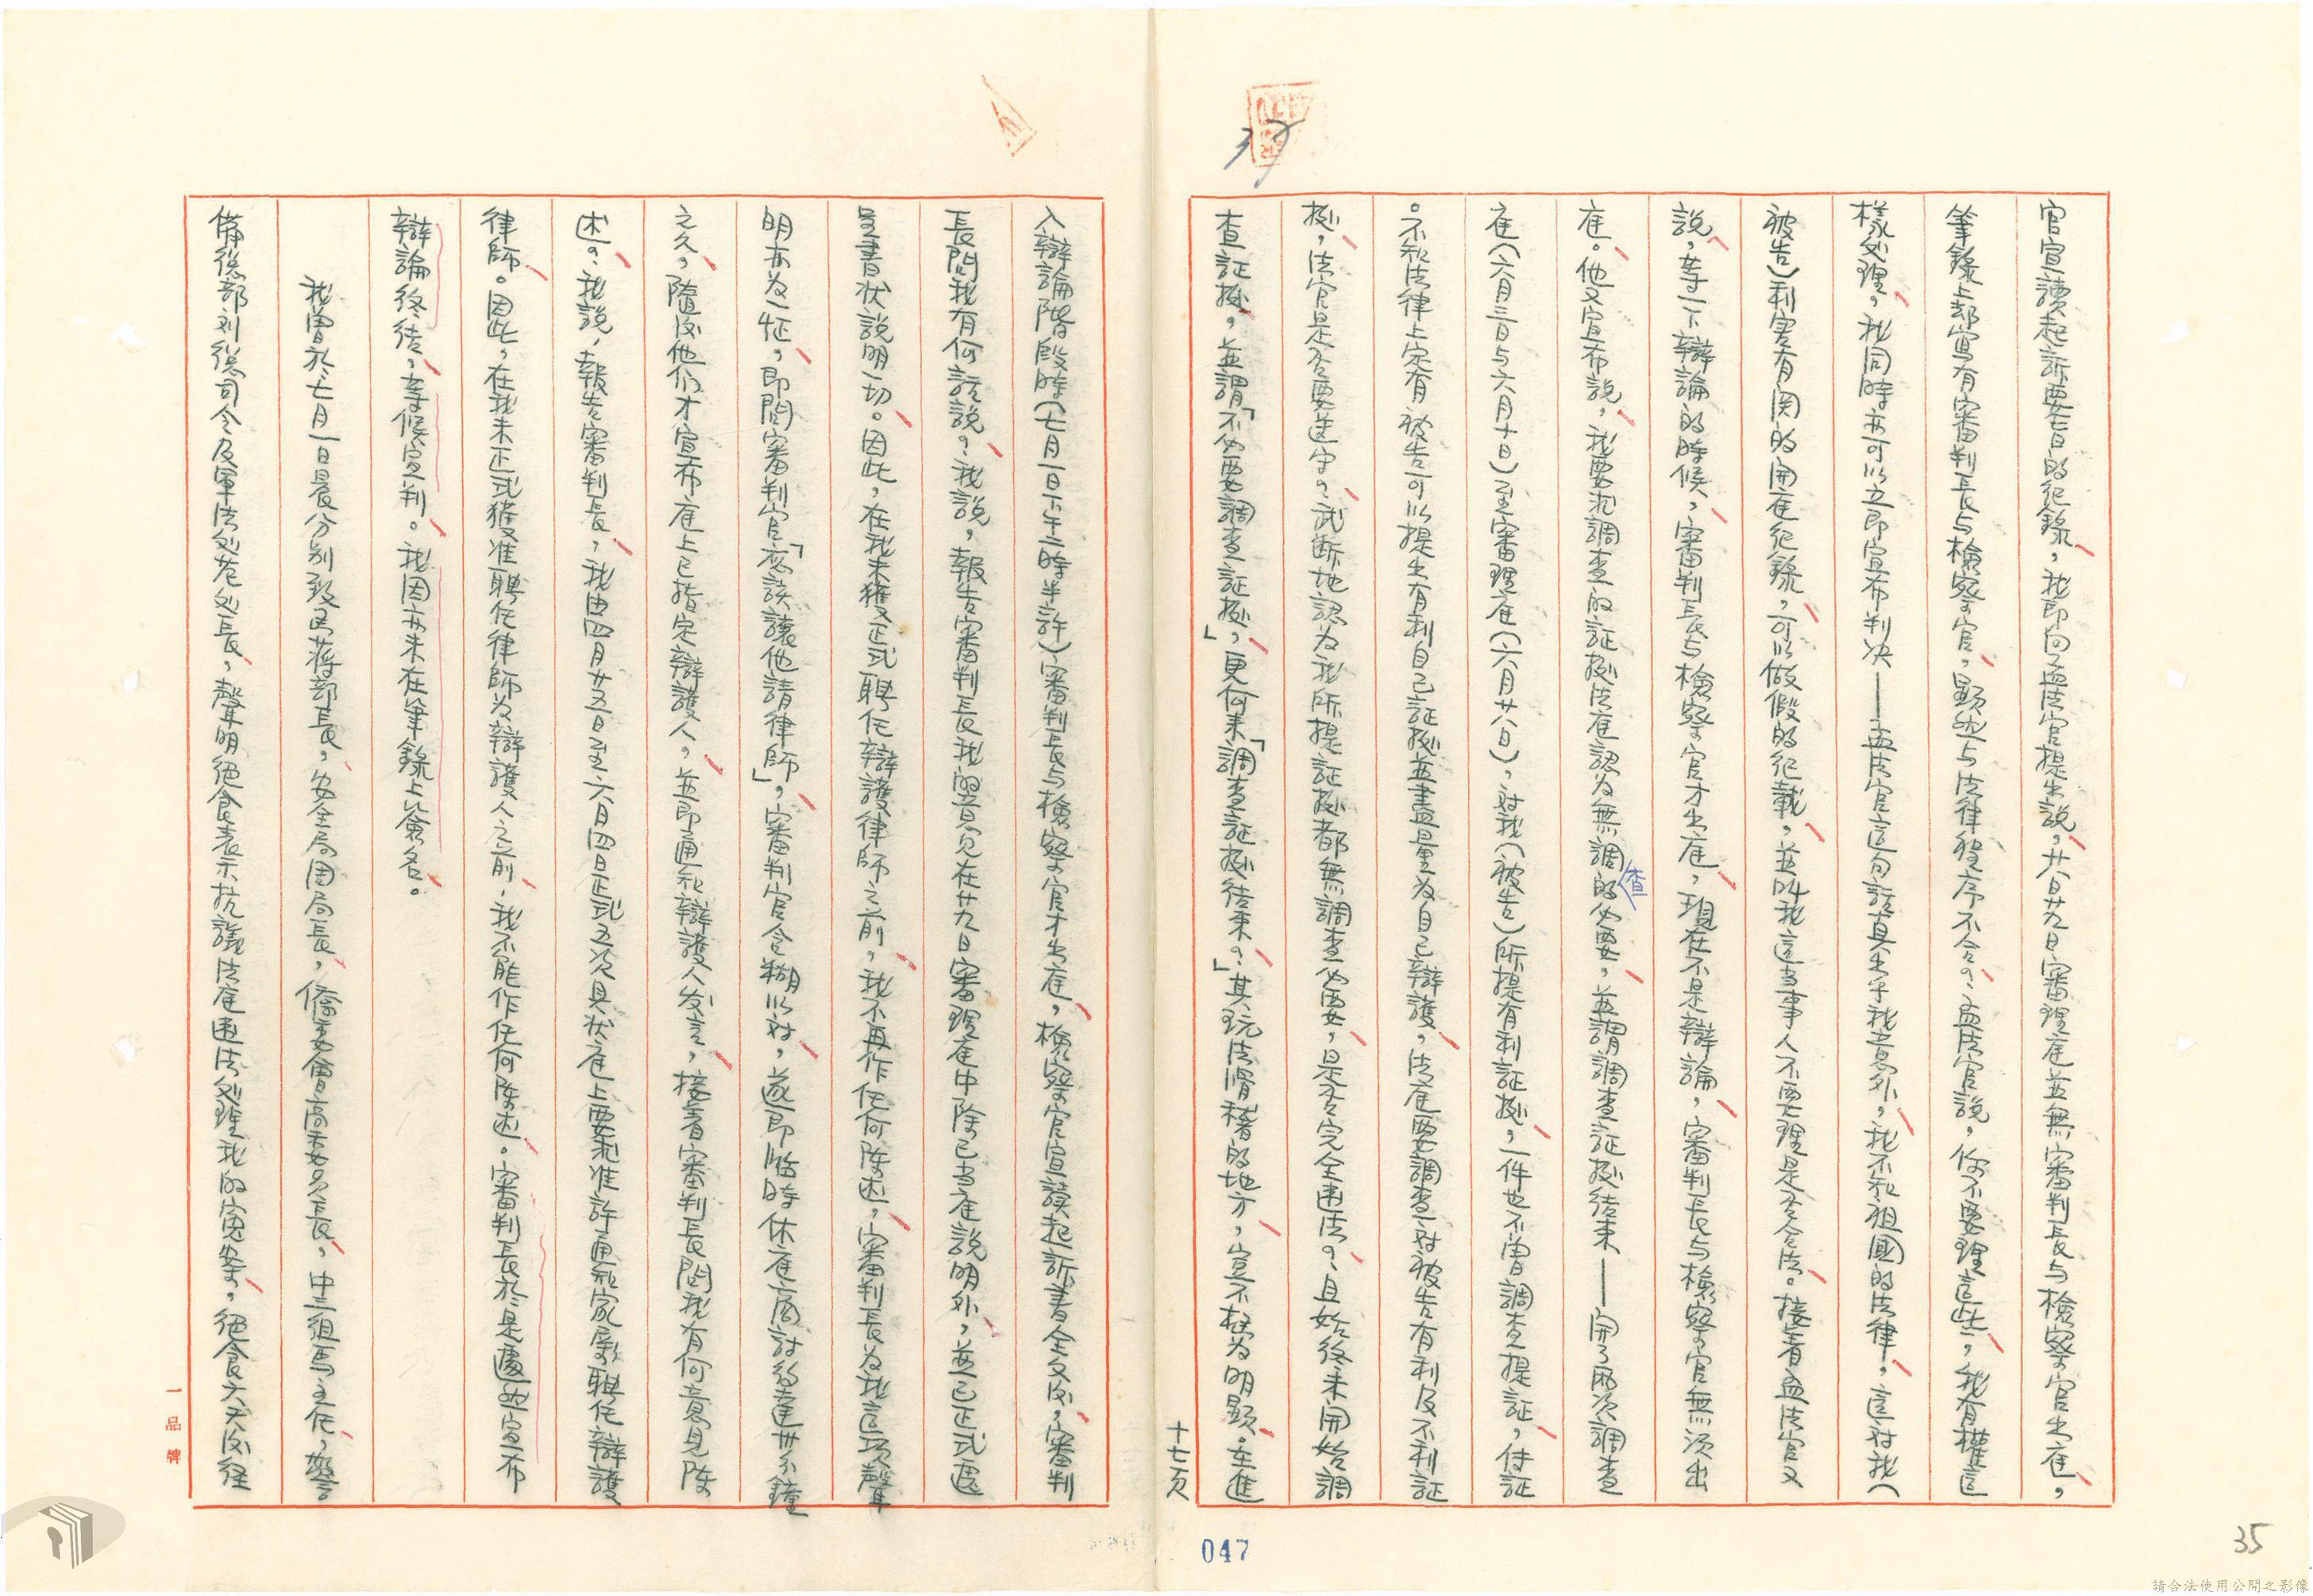 官宣讀起訴要旨的紀錄，我即向孟法官提出說，廿八日廿九日審理庭並無審判長与檢察官出庭，
筆錄上却寫有審判長与檢察官，顯然与法律程序不合？孟法官說，你不要理這些，我有權這
樣处理，我同時亦可以立即宣布判决——孟法官這句話真出乎我意外，我不知祖國的法律，這对我（
被告）利害有関的開庭紀錄，可以做假的紀載，並叫我這当事人不要理是否合法。接着孟法官又
說，等一下辯論的時候，審判長与檢察官才出庭，現在不是辯論，審判長与檢察官無須出
庭。他又宣布說，我要求調查的証據法庭認为無調查的必要，並謂調查証據結束——開了两次調查
庭（六月三日与六月十日）至審理庭（六月廿八日），对我（被告）所提有利証據，一件也不曾調查提証，付証
。不知法律上定有被告可以提出有利自己証據並盡量为自己辯護，法庭要調查对被告有利及不利証
據，法官是否要遵守？武断地認为我所提証據都無調查必要，是否完全違法？且始終未開始調
查証據，並謂「不必要調查証據」，更何來「調查証據結束？」其玩法滑稽的地方，豈不極为明顯。在進
十七頁
入辯論階段時（七月一日下午二時半許）審判長与檢察官才出庭，檢察官宣讀起訴書全文後，審判
長問我有何話說？我說，報告審判長我的意見在廿九日審理庭中除已当庭說明外，並已正式遞
呈書狀說明一切。因此，在我未獲正式聘任辯護律師之前，我不再作任何陈述，審判長为我這項聲
明亦为一怔，即問審判官「應該讓他請律師」，審判官含糊以对，遂即臨時休庭商討約達卅分鐘
之久，隨後他们才宣布庭上已指定辯護人，並即通知辯護人发言，接着審判長問我有何意見陈
述？我說，報告審判長，我由四月廿五日至六月四日正式五次具狀庭上要求准許通知家屬聘任辯護
律師。因此，在我未正式獲准聘任律師为辯護人之前，我不能作任何陈述。審判長於是遽然宣布
辯論終結，等候宣判。我因亦未在筆錄上簽名。
我曾於七月一日晨分別致函蔣部長，安全局周局長，僑委會高委員長，中三組馬主任，警
備總部刘總司令及軍法处范处長，聲明絕食表示抗議法庭違法处理我的寃案，絕食六天後經
一品牌
047
35
請合法使用公開之影像